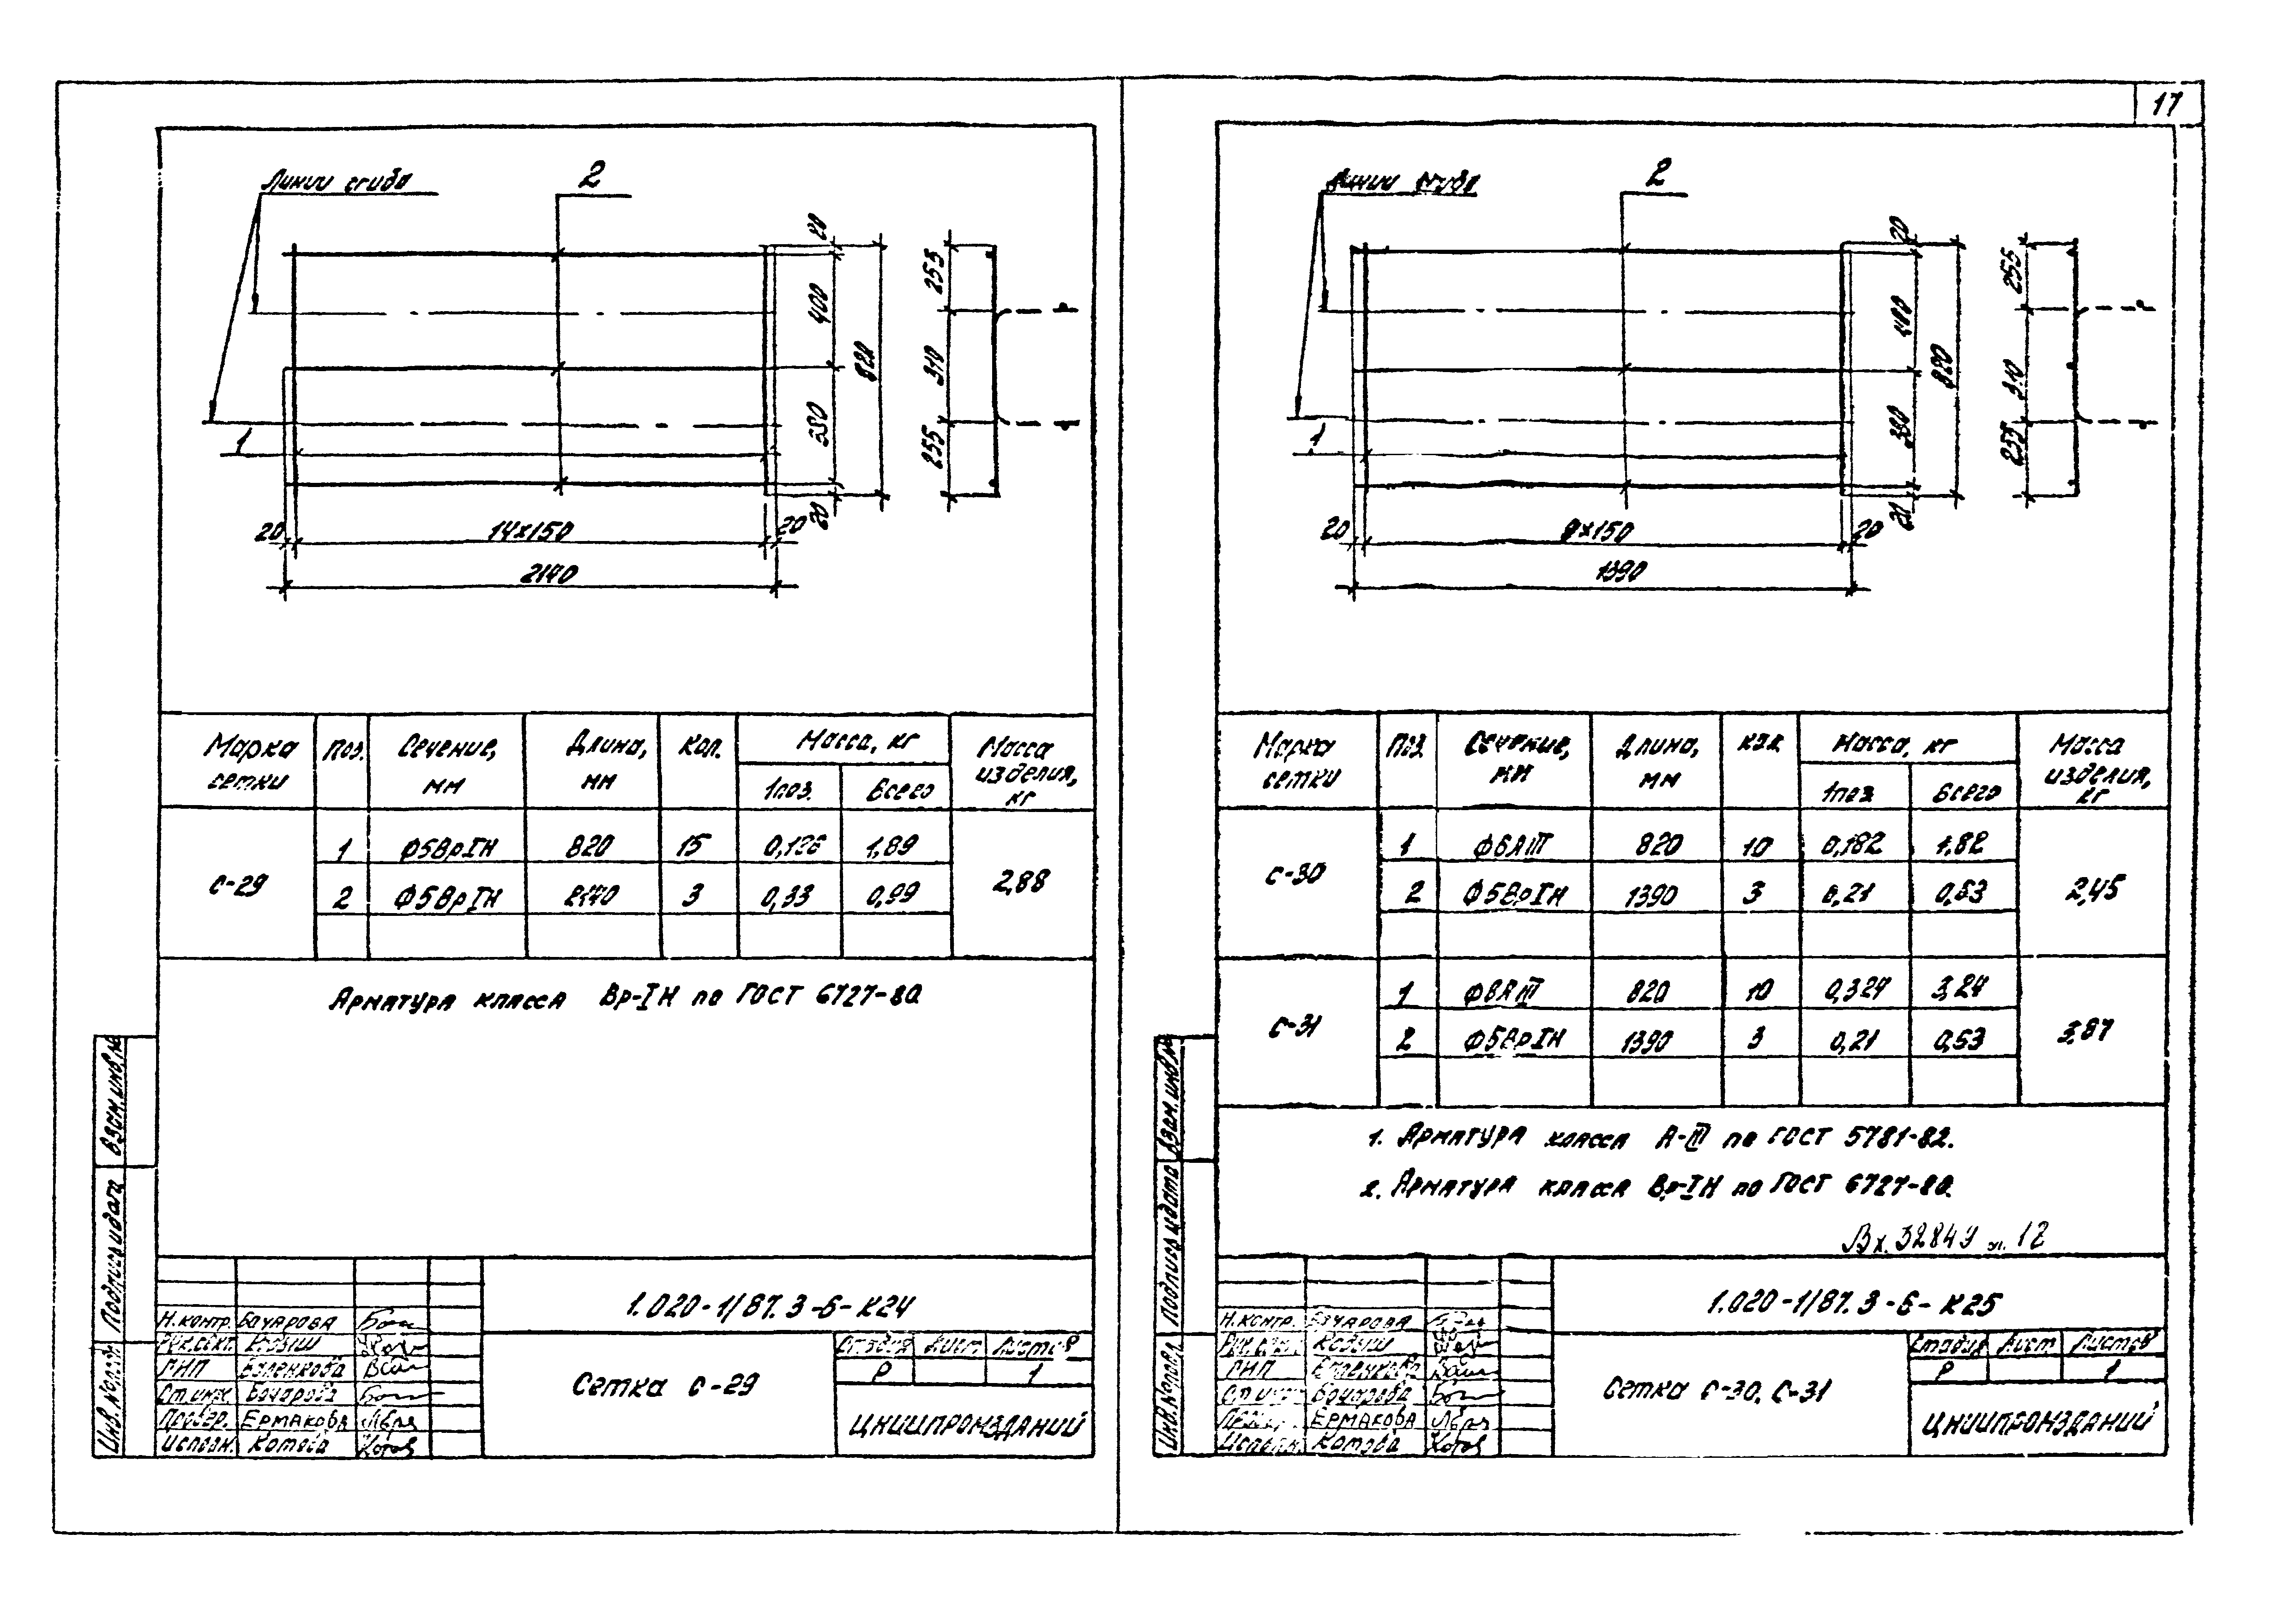 17
Линии сгиба
2
20
400
820
380
20
255
310
255
1
20
14х150
20
2140
Марка сетки
Поз.
Сечение, мм
Длина, мм
Кол.
Масса, кг
1поз.
Всего
Масса изделия, кг
С-29
1 Ф5ВрIН 820 15 0,126 1,89
2 Ф5ВрIН 2140 3 0,33 0,99
2,88
Арматура класса Вр-IН по ГОСТ 6727-80
Взам.инв.№
Подпись и дата
Инв.№подл.
1.020-1/87.3-6-К24
Н.контр. Бочарова
Рук.сект.
ГИП
Ст.инж. Бочарова
Провер. Ермакова
Исполн. Котова
Сетка С-29
Стадия Лист Листов
Р 1
ЦНИИПРОМЗДАНИЙ
Линии сгиба
2
20
400
820
380
20
255
310
255
1
20
9х150
20
1390
Марка сетки
Поз.
Сечение, мм
Длина, мм
Кол.
Масса, кг
1поз
Всего
Масса изделия, кг
С-30
1 Ф6АIII 820 10 0,182 1,82
2 Ф5ВрIН 1390 3 0,21 0,63
2,45
С-31
1 Ф8АIII 820 10 0,324 3,24
2 Ф5ВрIН 1390 3 0,21 0,63
3,87
1. Арматура класса А-III по ГОСТ 5781-82.
2. Арматура класса Вр-IН по ГОСТ 6727-80.
Вх. 32849 л. 12
Взам.инв.№
Подпись и дата
Инв.№подл.
1.020-1/87.3-6-К25
Н.контр. Бочарова
Рук.сект.
ГИП
Ст.инж. Бочарова
Провер. Ермакова
Исполн. Котова
Сетка С-30, С-31
Стадия Лист Листов
Р 1
ЦНИИПРОМЗДАНИЙ